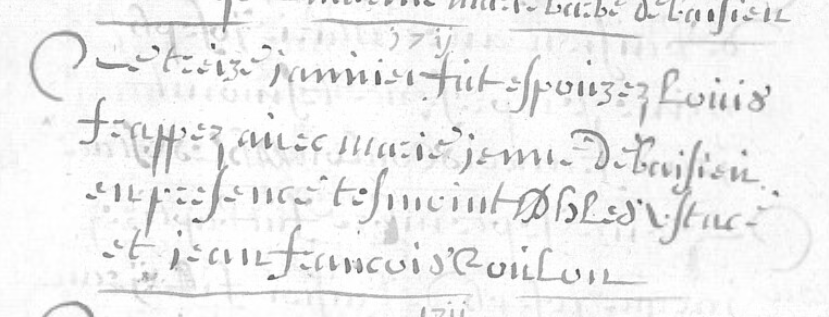 marie barbe debaisieu
17ij
Le treize jannvier fut espouzez Louis
frappez avec marie jenne Debaisieu
en presence tesmoint Ph les ustace
et jean francois Coulon
17ij